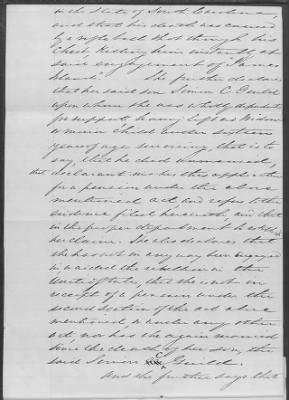 in the State of South Carolina,
and that his death was caused
by rifle ball that through his
chest killing him instantly at
said engagement of James
Island. She further declares
that her said son Simon C. Guild
upon whom she was wholly dependent
for support, having left no widow
or minor child under sixteen
years of age surviving, that is to
say, that he died unmarried,
that declarant makes this application
for a pension under the above
mentioned act, and refers to the
evidence filed herewith, and that
in the proper department to establish
her claim. She also declares that
she has not in any way been engaged
in or aided the rebellion in the
United States, that she is not in
receipt of a pension under the
second section of the act above
mentioned or under any other
act, nor has she again married
since the death of her son, the
said Simon C. Guild.
And she further says that